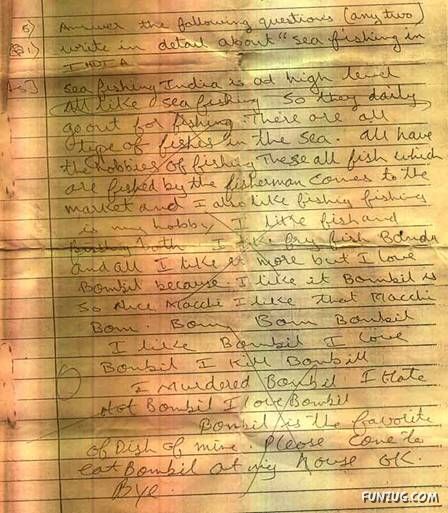 5) Answer the following questions (any two)
Q1) write in detail about "sea fishing in
INDIA
Ans] Sea fishing India is ad high level
All like sea fishing So they daily
go out for fishing. There are all
type of fishes in the sea. All have
the hobbies of fishing These all fish which
are fished by the fisherman comes to the
market and I also like fishing fishing
is my hobby I like fish and
both I like fry fish Bomda
and all I like it more but I love
Bombil because I like it Bombil is
so Nice Macchi I like that Macchi
Bom. Bom Bom Bombil
I like Bombil I love
Bombil I Kill Bombill
I Murdered Bombil I Hate
Not Bombil I love Bombil
Bombil is the favorite
of Dish of mine. Please come to
eat Bombil at my House OK.
Bye.
FUNZUG.COM